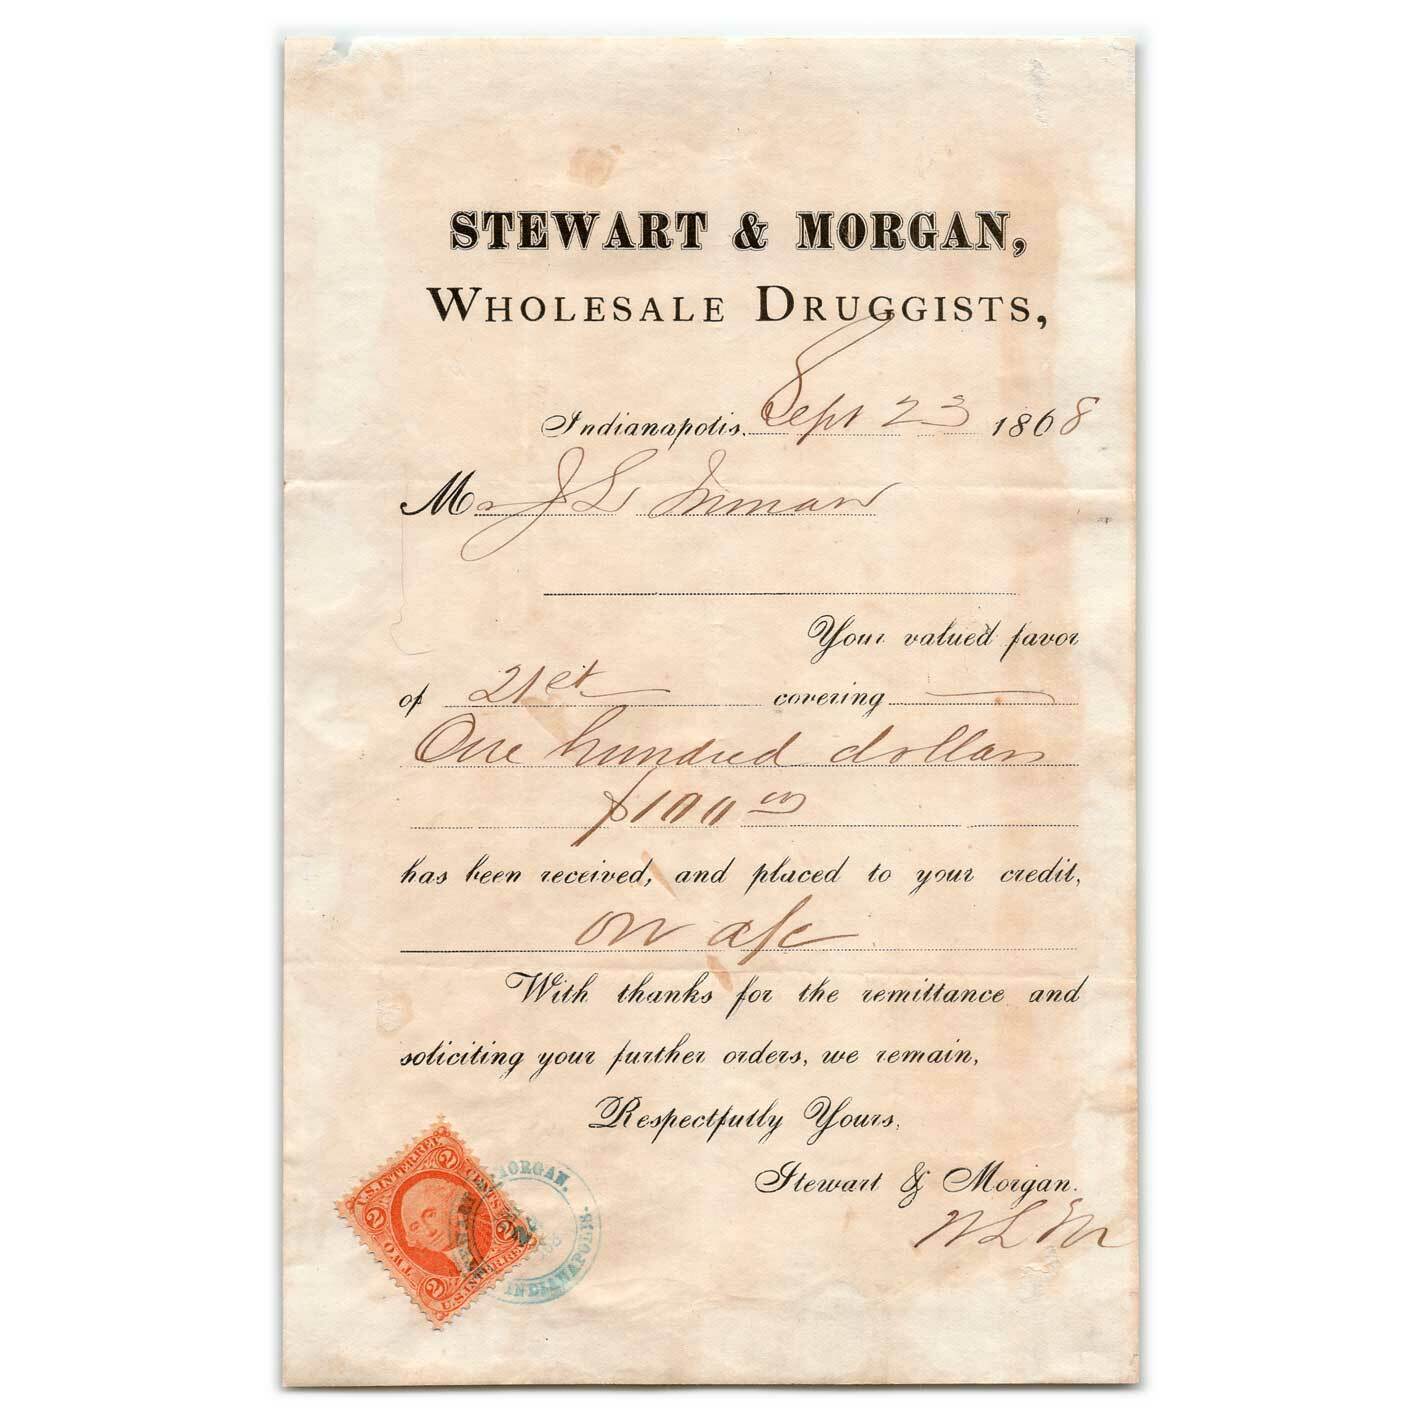 STEWART & MORGAN,
WHOLESALE DRUGGISTS,
Indianapolis, Sept 23 1868
Mr J L Inman
Your valued favor
of 21st covering
One hundred dollars
$100 00
has been received, and placed to your credit,
on a/c
With thanks for the remittance and
soliciting your further orders, we remain,
Respectfully Yours,
Stewart & Morgan.
U.S. INTER. REV.
2 CENTS 2
TWO 2
U.S. INTER. REV.
MORGAN.
INDIANAPOLIS.